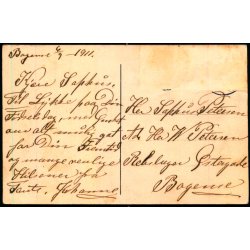 Bogense 4/9 1911.
Kære Sophus,
Til Lykke paa Din
Fødselsdag, med Ønsket
om alt muligt godt
for Din Fremtid
og mange venlige
Hilsener fra
Tante, Johanne.
Her Sophus Petersen
Adr. Her W. Petersen
Rebslager Østergade
Bogense